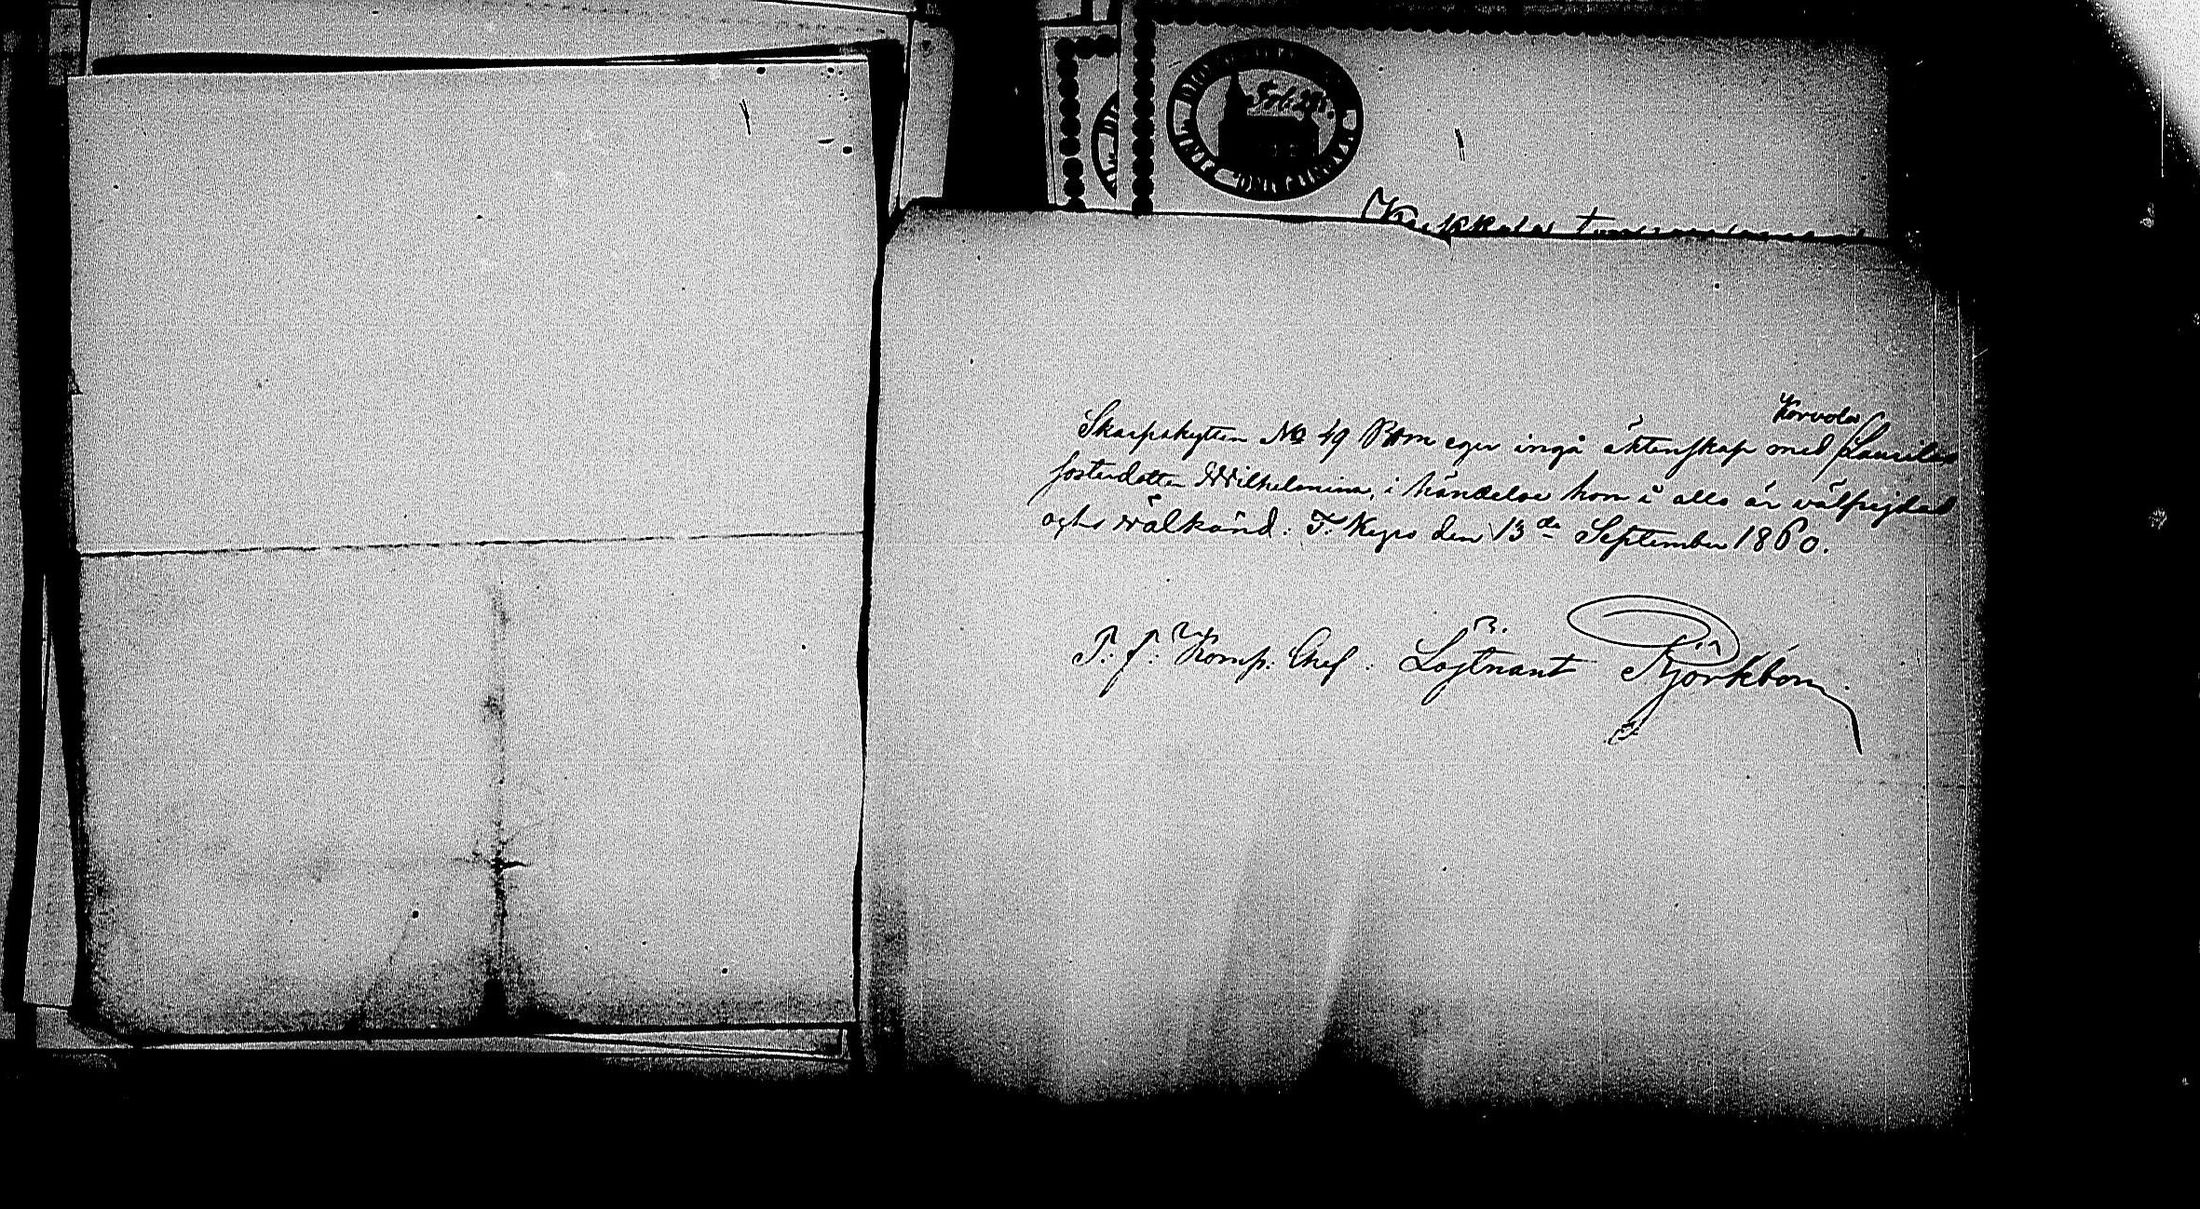 Korvola
Skarpskytten No 49 Bom eger ingå äktenskap med Laurila
fosterdotter Wilhelmina, i händelse hon i allo är välfrejdad
och wälkänd. T. Kyro den 13de September 1860.
T. f. Komp. Chef. Löjtnant Björkbom